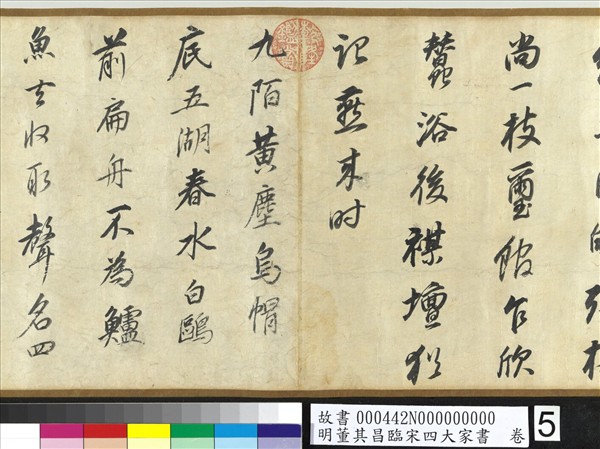 尚一枝璽館乍欣
蠶浴後禖壇猶
記燕來時
九陌黃塵烏帽
底五湖春水白鷗
前扁舟不為鱸
魚去收取聲名四
故書 000442N000000000
明董其昌臨宋四大家書 卷
5